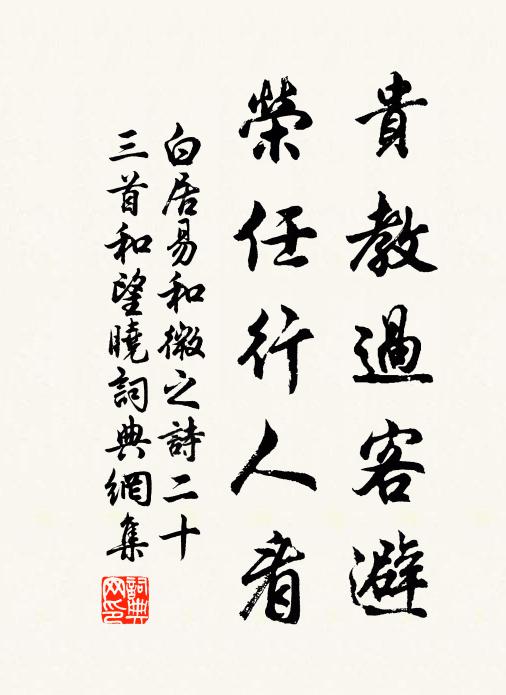 貴教過客避
榮任行人看
白居易和微之詩二十
三首和望曉詞典網集
詞典网印